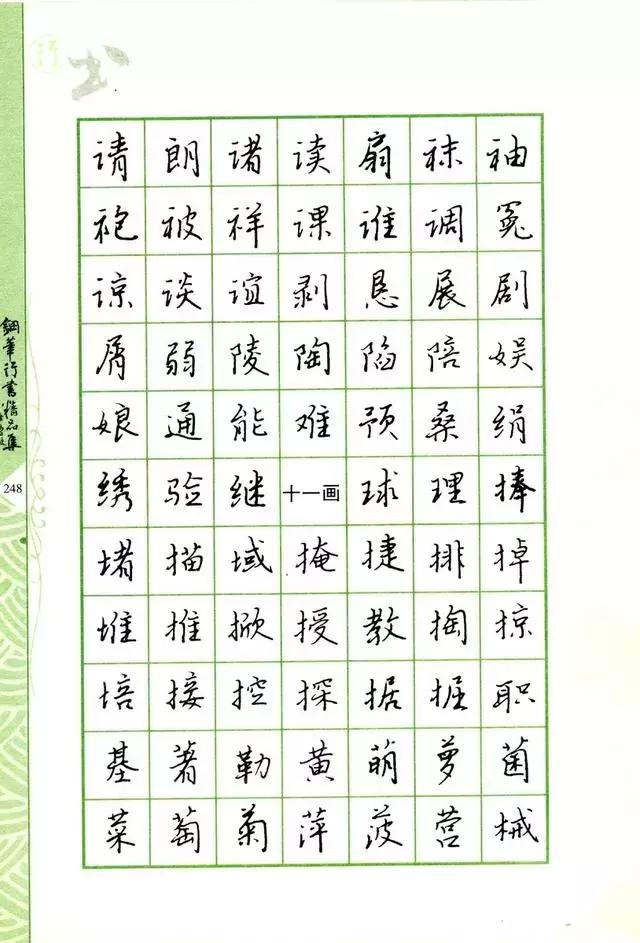 行书
请朗诸读扇袜袖
袍被祥课谁调冤
谅谈谊剥恳展剧
屑弱陵陶陷陪娱
娘通能难预桑绢
绣验继十一画球理捧
堵描域掩捷排掉
堆推掀授教掏掠
培接控探据掘职
基著勒黄萌萝菌
菜萄菊萍菠营械
钢笔行书精品集
248